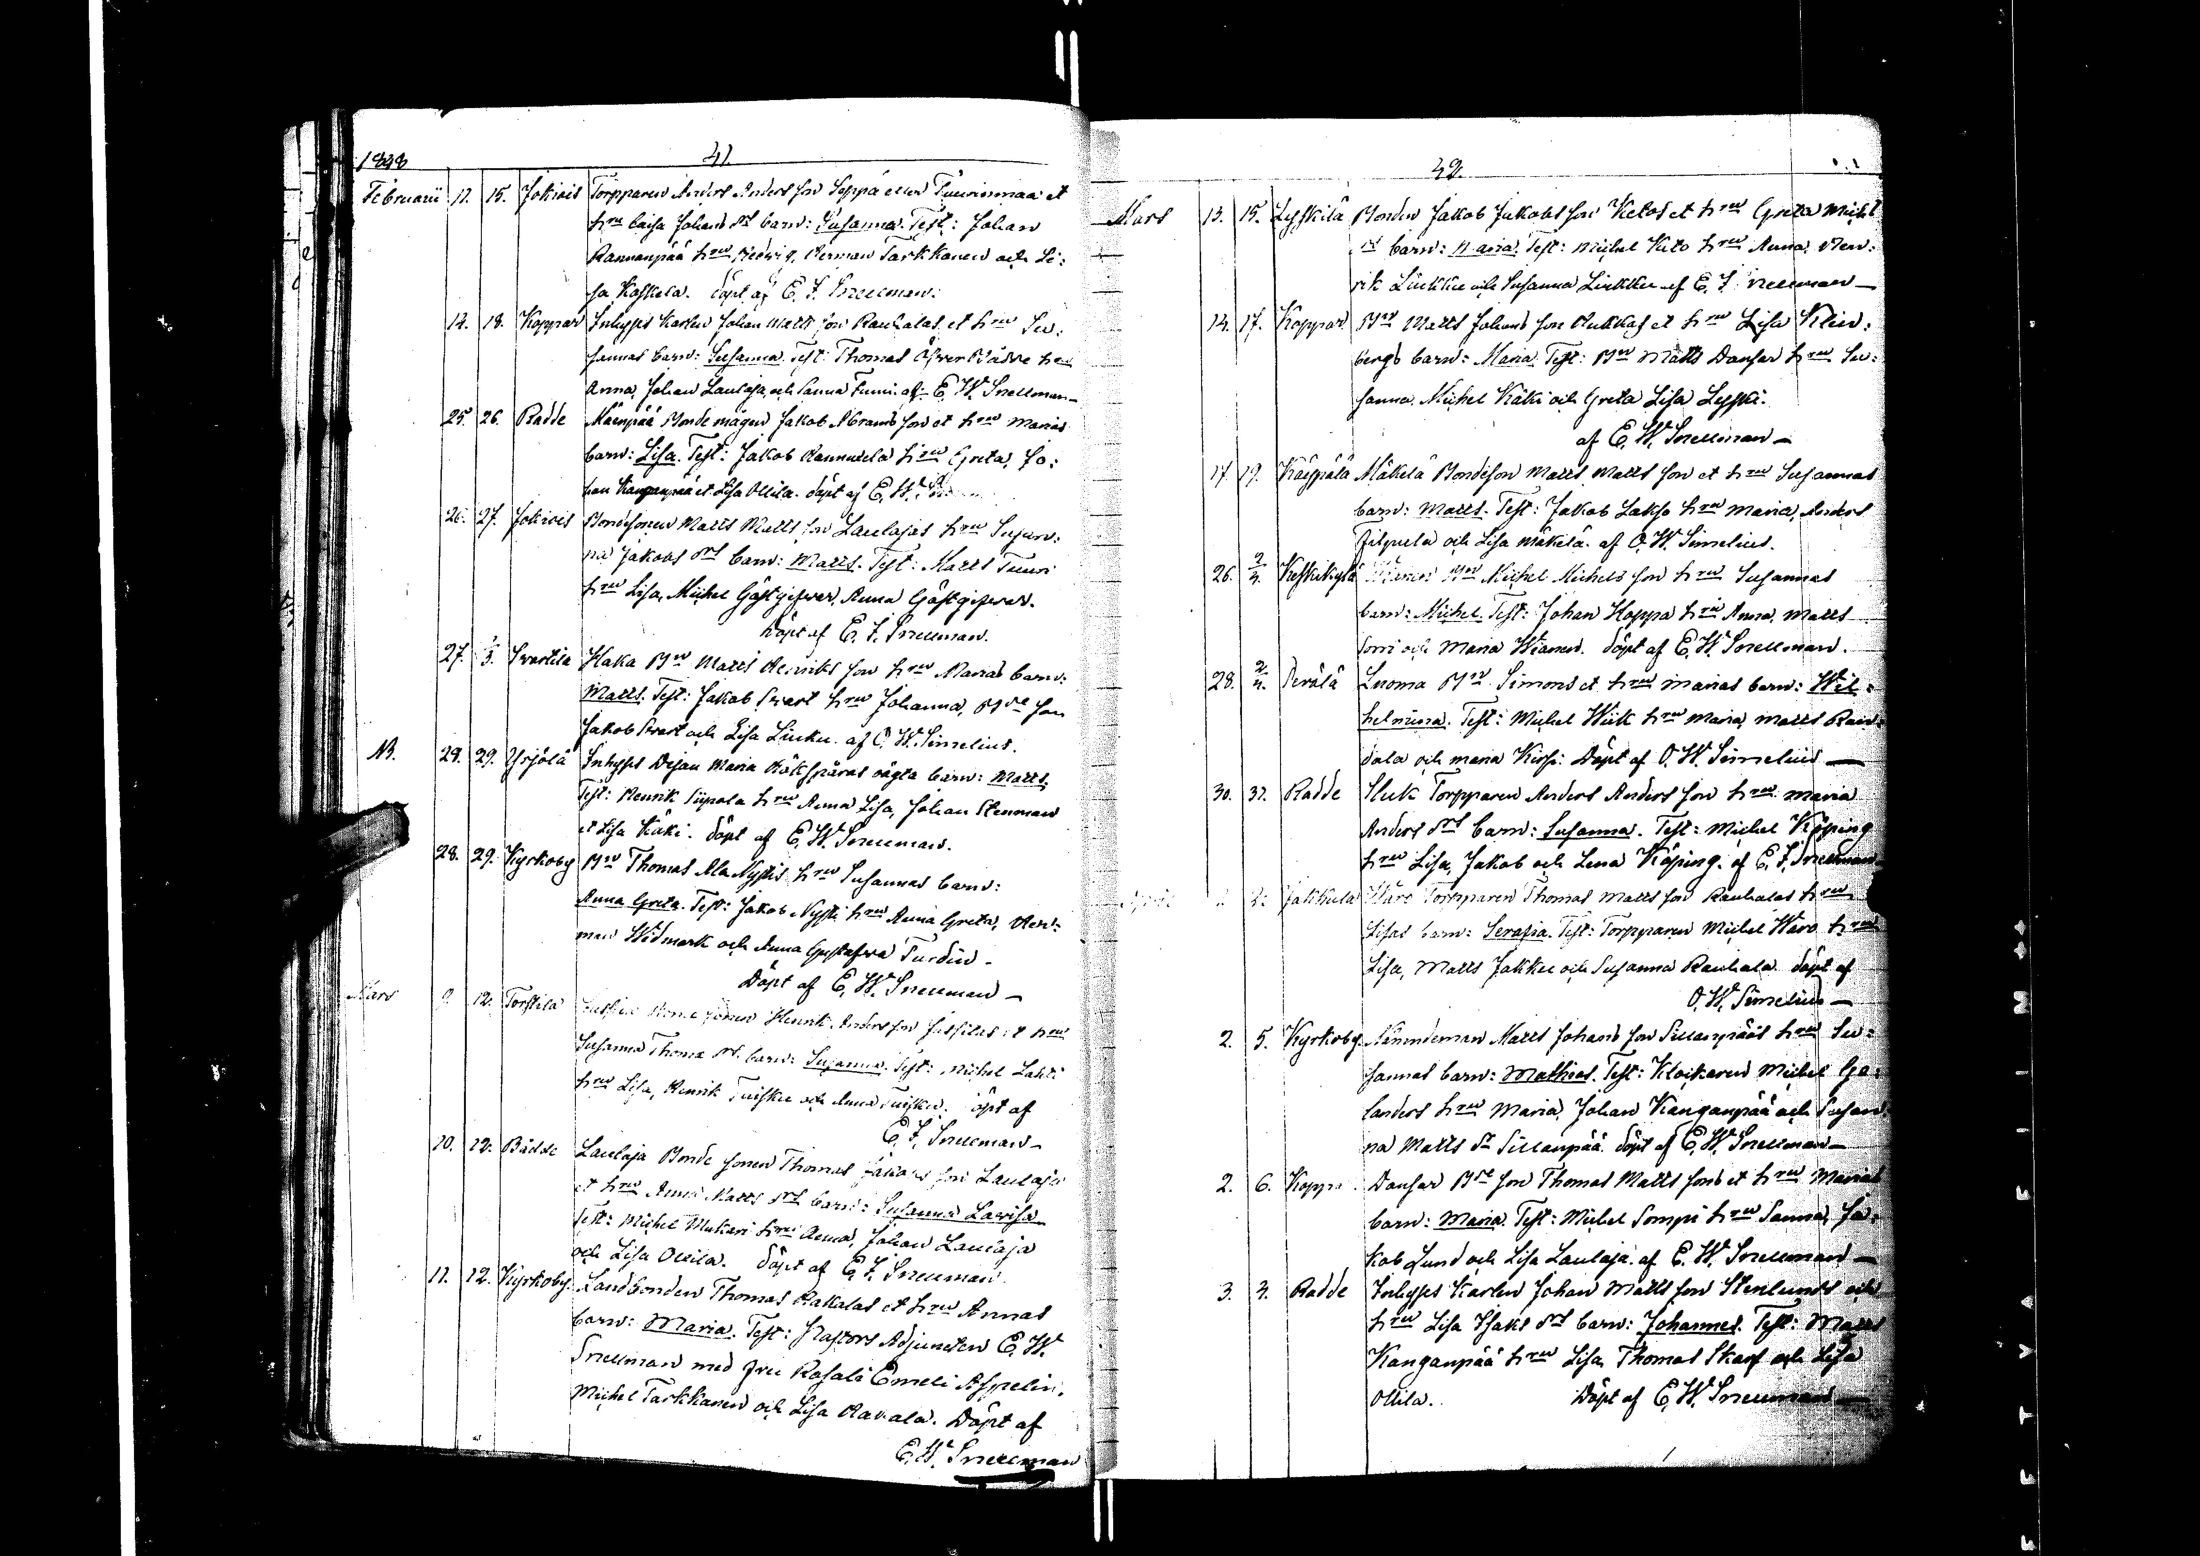 1848
41
Februarii 11. 15. Jokrois Torpparen Anders Anders son Seppä eller Tuurinmaa et
hru Caisa Johans dr barn: Susanna. Test: Johan
Rannanpää hru Hedvig, Herman Tarkkanen och Li:
sa Koskela. döpt af E. F. Snellman.
14. 18. Koppar Inhyses Karlen Johan Matts son Rauhalas et hru Su:
sannas barn: Susanna. Test: Thomas Öfver Bädde hru
Anna, Johan Laulaja och Sanna Tuuri. af E. W. Snellman
25. 26. Radde Mäenpää Bonde mågen Jakob Abrams son et hru Marias
barn: Lisa. Test: Jakob Rannuela hru Greta, Jo:
han Kanganpää et Lisa Ollila. döpt af E. W.
26. 27. Jokrois Bondesonen Matts Matts son Laulajas hru Susan:
na Jakobs drs barn: Matts. Test: Matts Tuuri
hru Lisa, Michel Gästgifver, Anna Gästgifver.
Döpt af E. F. Snellman.
27. 1/3. Svartila Haka Bn Matts Henriks son hru Marias barn:
Matts. Test: Jakob Svart hru Johanna, Bde son
Jakob Svart och Lisa Liuku. af O. W. Simelius.
NB. 28. 29. Yrjölä Inhyses Dejan Maria Kökspäras oägta barn: Matts
Test: Henrik Siipola hru Anna Lisa, Johan Stenman
et Lisa Käki. döpt af E. W. Snellman.
28. 29. Kyrkoby Bn Thomas Ala Nystis hru Susannas barn:
Anna Greta. Test: Jakob Nysti hru Anna Greta, Her:
man Widmark och Anna Gustafva Turdin.
Döpt af E. W. Snellman
Mars 9. 12. Torstila Bonde sonen Henrik Anders son Jussilas et hru
Susanna Thomæ dr. barn: Susanna. Test: Michel Lahti
hru Lisa, Henrik Tuisku och Anna Tuisku. döpt af
E. F. Snellman
10. 12. Bädde Laulaja Bonde sonen Thomas Jakobs son Laulajas
et hru Anna Matts drs barn: Susanna Lovisa
Test: Michel Mukari hru Anna, Johan Laulaja
och Lisa Ollila. Döpt af E. F. Snellman
11. 12. Kyrkoby. Landbonden Thomas Rakalas et hru Annas
barn: Maria. Test: Pastors Adjuncten E. W.
Snellman med fru Rosali Emeli Aspelin,
Michel Tarkkanen och Lisa Rakala. Döpt af
E. W. Snellman
42.
Mars 13. 15. Lyskilä Bonden Jakob Jakobs son Ketos et hru Greta Michl
dr barn: Maria. Test: Michel Keto hru Anna, Hen:
rik Liukku och Susanna Liukku af E. F. Snellman
14. 17. Koppar Bn Matts Johans son Rukkas et hru Lisa Klin:
bergs barn: Maria. Test: Bn Matts Dansar hru Su:
sanna. Michel Käki och Greta Lisa Lyski.
af E. W. Snellman
17. 19. Käypälä Mäkelä Bondeson Matts Matts son et hru Susannas
barn: Matts. Test: Jakob Lakso hru Maria, Anders
Filpula och Lisa Mäkelä. af O. W. Simelius.
26. 2/4. Keskikylä Bn Michel Michels son hru Susannas
barn: Michel. Test: Johan Hoppa hru Anna, Matts
Sorri och Maria Wiänen. Döpt af E. W. Snellman.
28. 2/4. Perälä Luoma Bn Simons et hru Marias barn: Wil:
helmina. Test: Michel Wiik hru Maria, Matts Rau:
dala och Maria Kirsi. Döpt af O. W. Simelius
30. 31. Radde Sluk Torpparen Anders Anders son hru Maria
Anders drs barn: Susanna. Test: Michel Köping
hru Lisa, Jakob och Lena Köping. af E. F. Snellman
April 2: Jakkula Waro Torpparen Thomas Matts son Rauhalas hru
Lisas barn: Serafia. Test: Torpparen Michel Waro hru
Lisa, Matts Jakku och Susanna Rauhala. döpt af
O. W. Simelius
2. 5. Kyrkoby. Nämndeman Matts Johans son Sillanpääs hru Su:
sannas barn: Mathias. Test: Klockaren Michel Ga:
landers hru Maria, Johan Kanganpää och Susan
na Matts dr Sillanpää. döpt af E. W. Snellman
2. 6. Koppar Dansar Bde son Thomas Matts sons et hru Marias
barn: Maria. Test: Michel Sompi hru Sanna, Ja:
kob Lund och Lisa Laulaja. af E. W. Snellman
3. 4. Radde Inhyses Karlen Johan Matts son Stenlunds och
hru Lisa Isaks drs barn: Johannes. Test: Matts
Kanganpää hru Lisa, Thomas Skarf och Lisa
Ollila. Döpt af E. W. Snellman